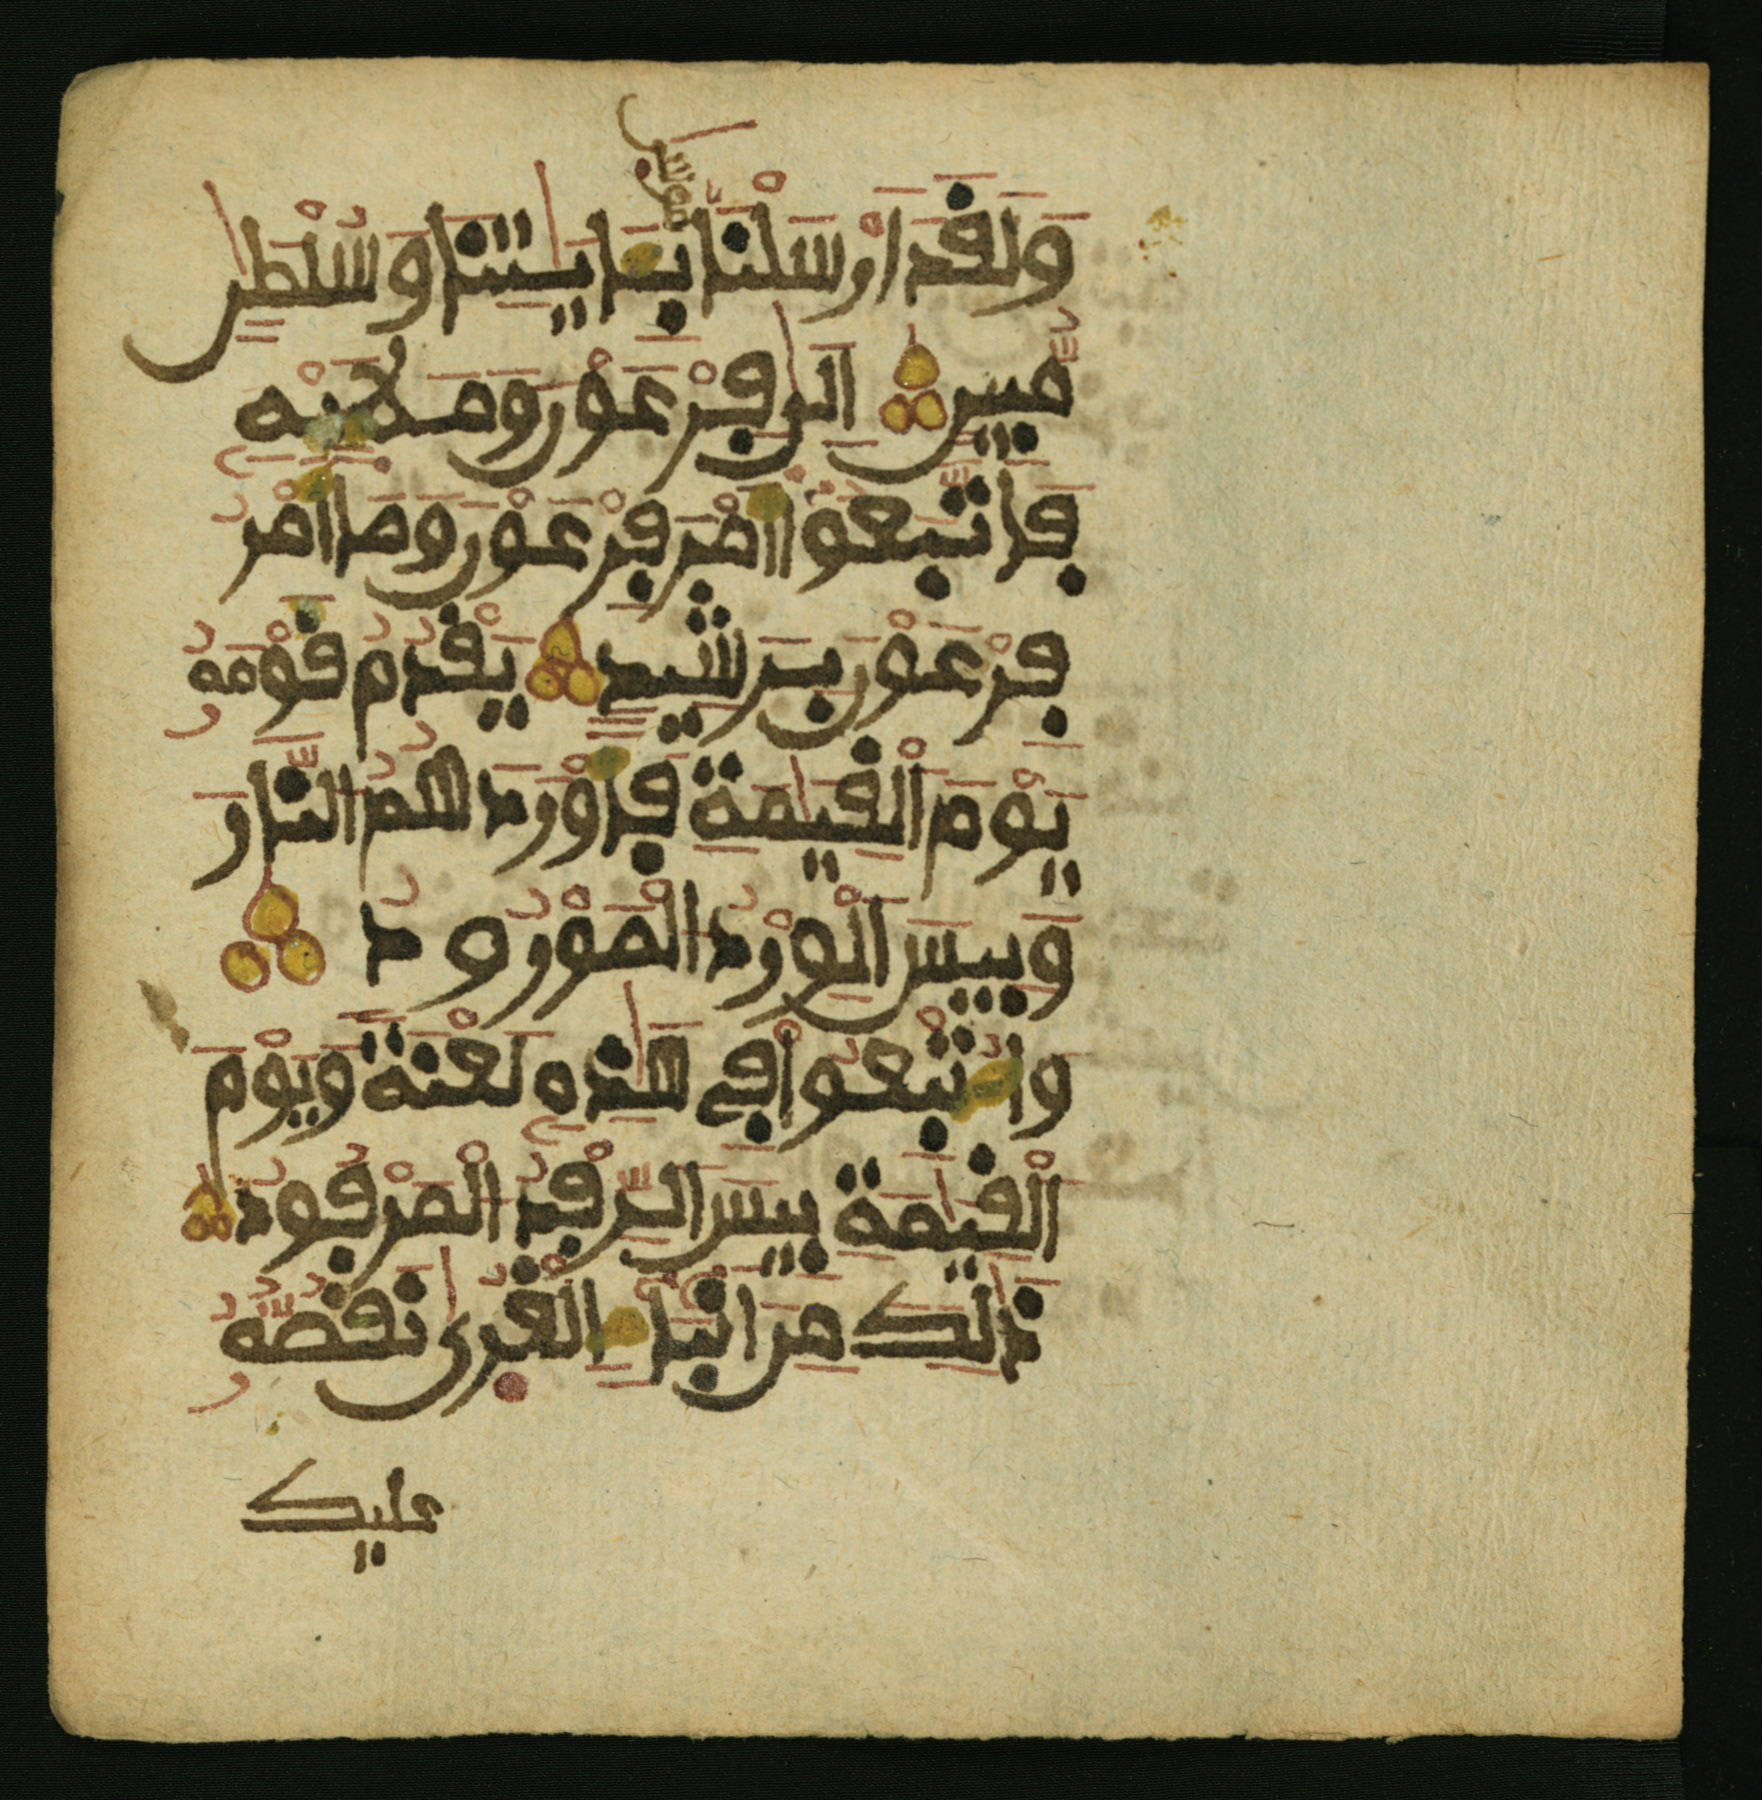 موسى
وَلَقَدْ اَرْسَلْنَا بِـَٔايَٰتِنَا وَسُلْطَٰنٍ
مُّبِينٍ اِلَىٰ فِرْعَوْنَ وَمَلَإِيْهِۦ
فَاتَّبَعُوٓا أَمْرَ فِرْعَوْنَ وَمَا أَمْرُ
فِرْعَوْنَ بِرَشِيدٍ يَقْدُمُ قَوْمَهُۥ
يَوْمَ اَلْقِيَٰمَةِ فَأَوْرَدَهُمُ النَّارَ
وَبِيسَ اَلْوِرْدُ الْمَوْرُودُ
وَأُتْبِعُوا فِے هَٰذِهِۦ لَعْنَةً وَيَوْمَ
اَلْقِيَٰمَةِ بِيسَ اَلرِّفْدُ الْمَرْفُودُ
ذَٰلِكَ مِنَ اَنۢبَآءِ الْقُرَىٰ نَقُصُّهُۥ
عليك